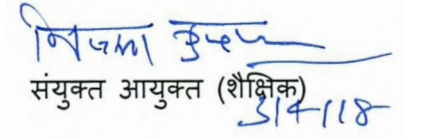 संयुक्त आयुक्त (शैक्षिक)
3/4/18